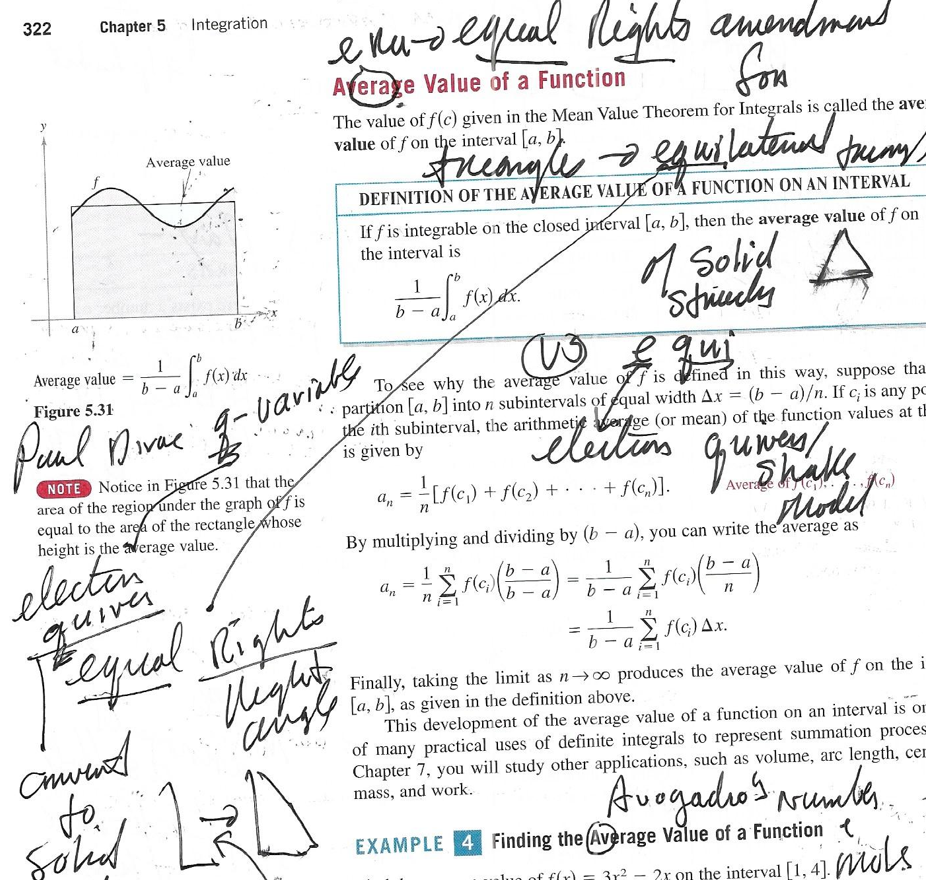 322 Chapter 5 Integration
era → equal Rights amendment
for
Average Value of a Function
The value of f(c) given in the Mean Value Theorem for Integrals is called the ave
value of f on the interval [a, b].
triangles → equilateral
DEFINITION OF THE AVERAGE VALUE OF A FUNCTION ON AN INTERVAL
If f is integrable on the closed interval [a, b], then the average value of f on
the interval is
1/(b − a) ∫_a^b f(x) dx.
of Solid
y
Average value
f
a b x
Average value = 1/(b − a) ∫_a^b f(x) dx
Figure 5.31
q-variable
Paul Dirac
NOTE Notice in Figure 5.31 that the
area of the region under the graph of f is
equal to the area of the rectangle whose
height is the average value.
electron
quiver
equal Rights
Right
angle
convert
to
solid
e qui
To see why the average value of f is defined in this way, suppose tha
partition [a, b] into n subintervals of equal width Δx = (b − a)/n. If c_i is any po
the ith subinterval, the arithmetic average (or mean) of the function values at th
is given by
electron quivers/
shake
model
a_n = 1/n [f(c_1) + f(c_2) + · · · + f(c_n)]. Average of f(c_1), . . . , f(c_n)
By multiplying and dividing by (b − a), you can write the average as
a_n = 1/n Σ_{i=1}^n f(c_i)((b − a)/(b − a)) = 1/(b − a) Σ_{i=1}^n f(c_i)((b − a)/n)
= 1/(b − a) Σ_{i=1}^n f(c_i) Δx.
Finally, taking the limit as n → ∞ produces the average value of f on the i
[a, b], as given in the definition above.
This development of the average value of a function on an interval is on
of many practical uses of definite integrals to represent summation proces
Chapter 7, you will study other applications, such as volume, arc length, cen
mass, and work.
Avogadro's number
EXAMPLE 4 Finding the Average Value of a Function
mols
value of f(x) = 3x² − 2x on the interval [1, 4].